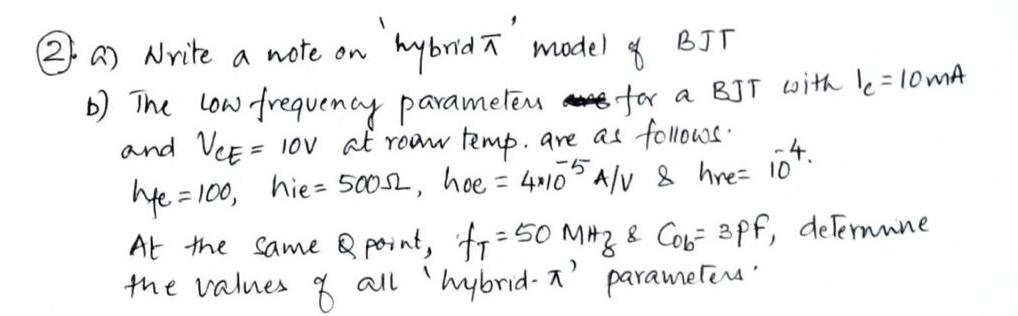 2. a) Write a note on 'hybrid π' model of BJT
b) The low frequency parameters for a BJT with Ic = 10mA
and VCE = 10V at room temp. are as follows.
hfe = 100, hie = 500Ω, hoe = 4×10⁻⁵ A/V & hre = 10⁻⁴.
At the same Q point, fT = 50 MHz & Cob = 3pF, determine
the values of all 'hybrid-π' parameters.